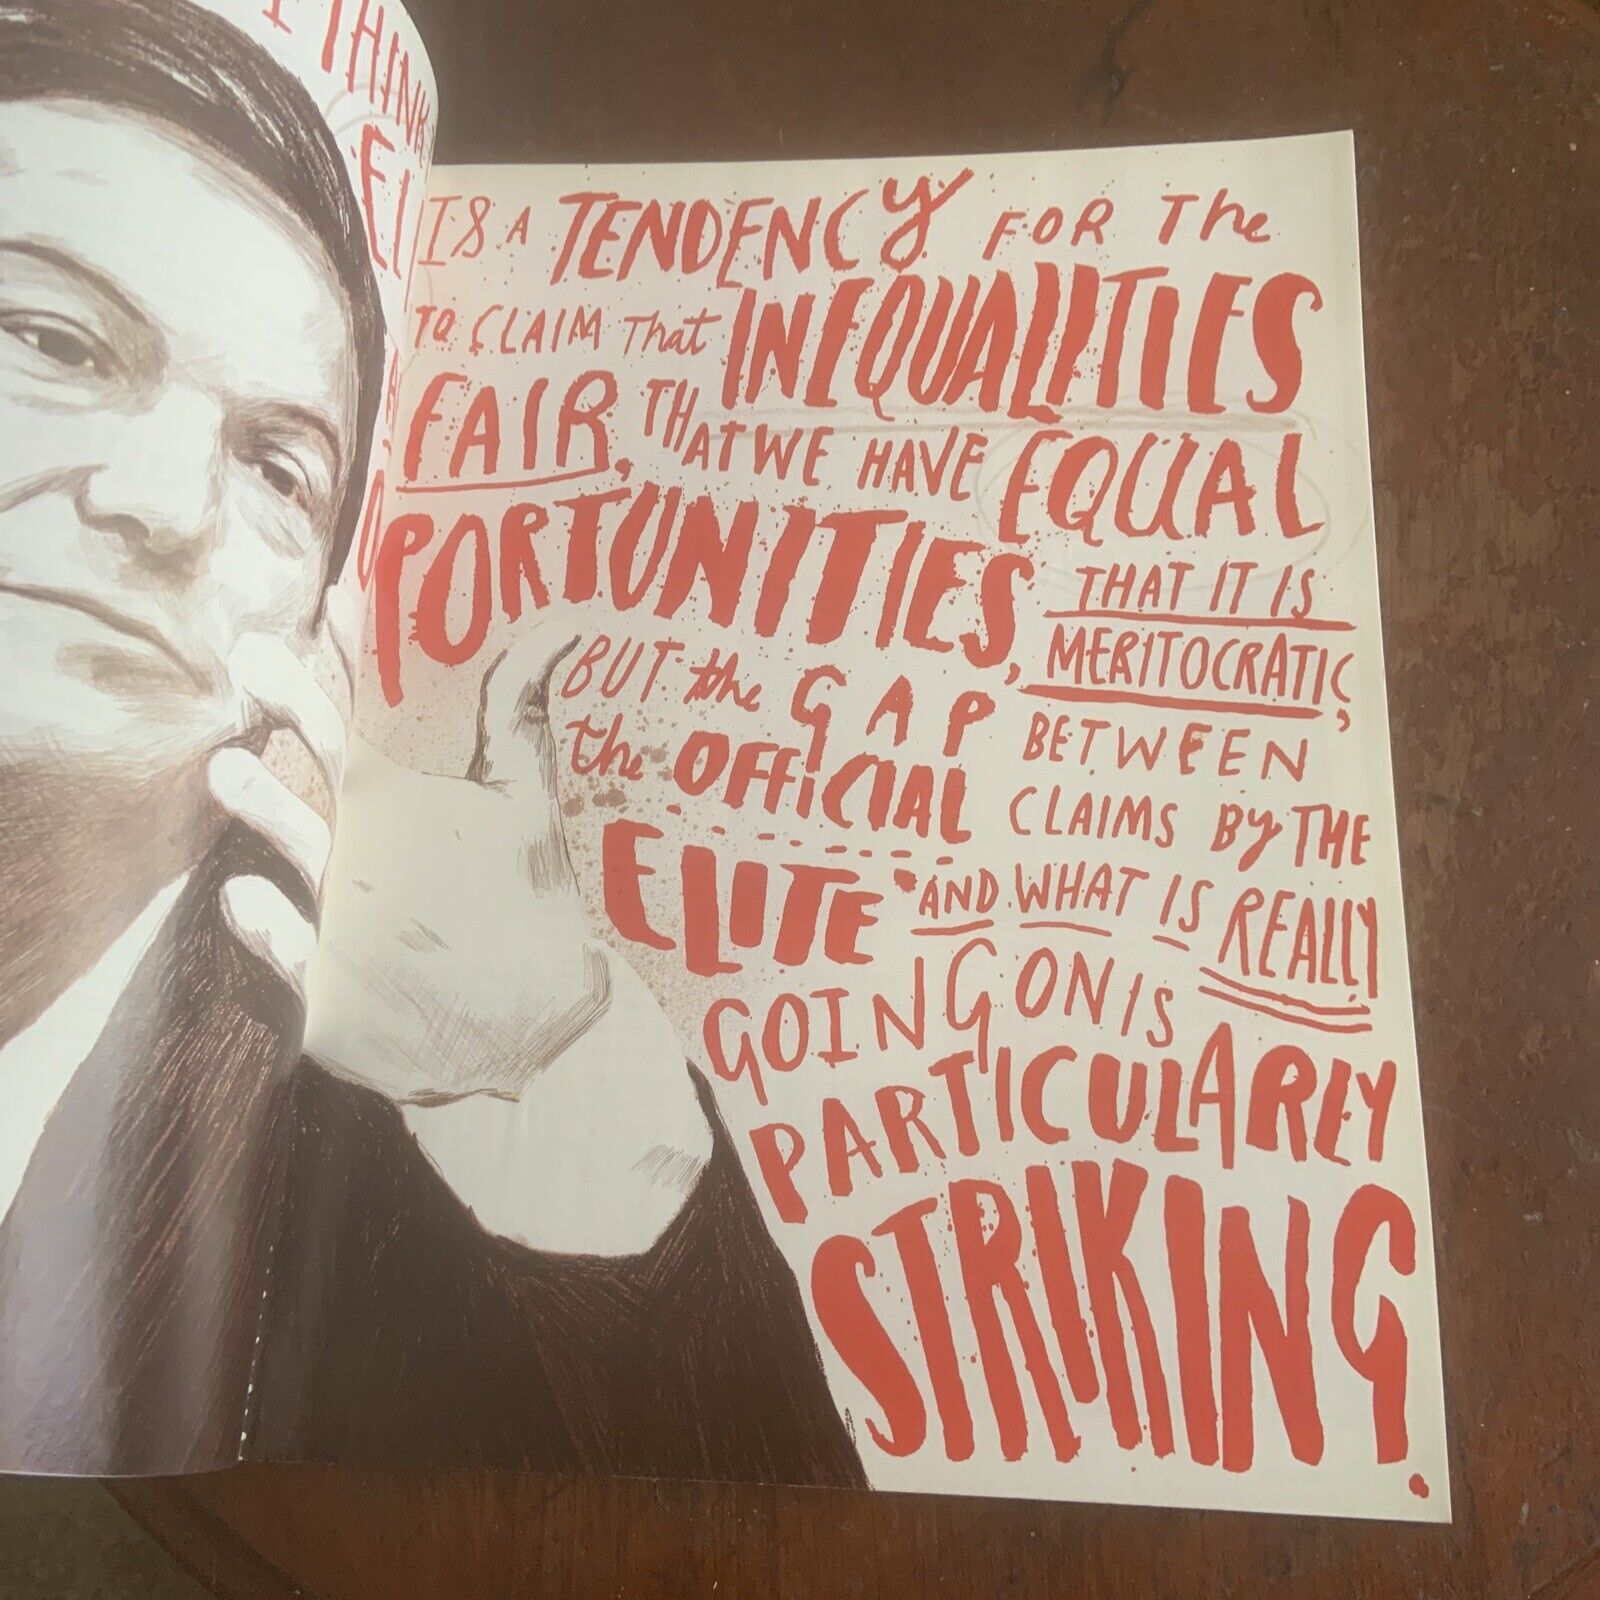 I THINK
EL
IS A TENDENCY FOR The
TO CLAIM That INEQUALITIES
FAIR, THAT WE HAVE EQUAL
PORTUNITIES, THAT IT IS
MERITOCRATIC,
BUT the GAP BETWEEN
the OFFICIAL CLAIMS BY THE
ELITE AND WHAT IS REALLY
GOING ON IS
PARTICULARLY
STRIKING.